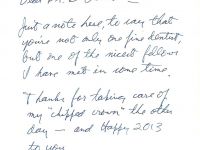 Dear
Just a note here, to say that
you're not only one fine dentist,
but one of the nicest fellows
I have met in some time.
Thanks for taking care of
my "chipped crown" the other
day — and Happy 2013
to you